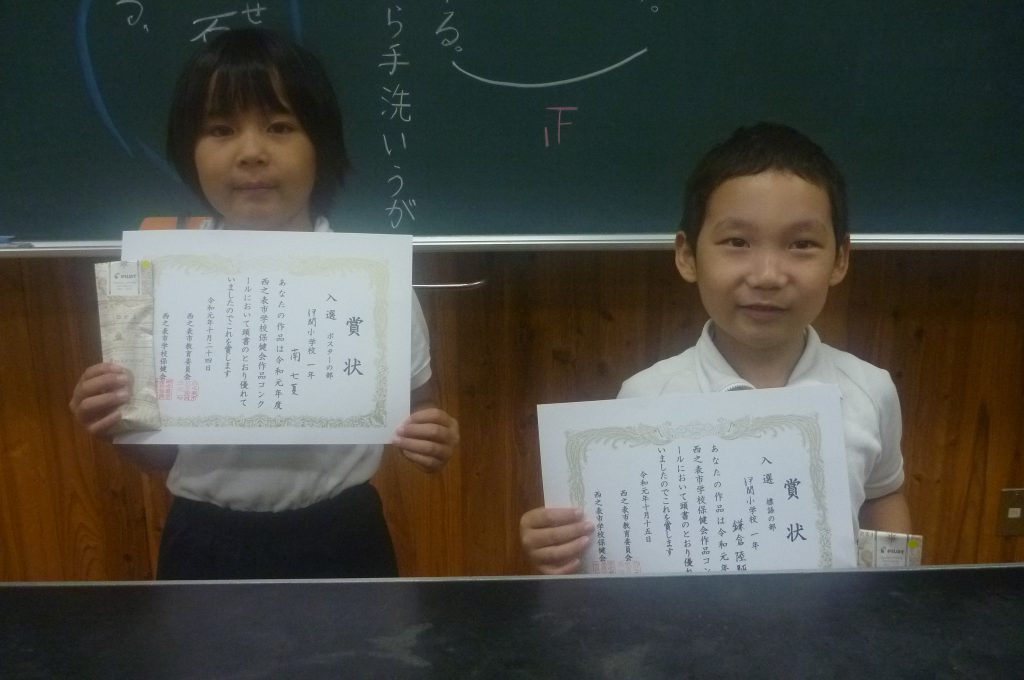 る。
せ
ら手洗いうが
る。
正
賞状
入選 ポスターの部
伊関小学校 一年
南 七夏
あなたの作品は令和元年度
西之表市学校保健会作品コンク
ールにおいて頭書のとおり優れて
いましたのでこれを賞します
令和元年十月二十四日
西之表市教育委員会
西之表市学校保健会
PILOT
賞状
入選 標語の部
伊関小学校 一年
鎌倉 陸
あなたの作品は令和元年
西之表市学校保健会作品コン
ールにおいて頭書のとおり優れ
いましたのでこれを賞します
令和元年十月十五日
西之表市教育委員会
西之表市学校保健会
PILOT